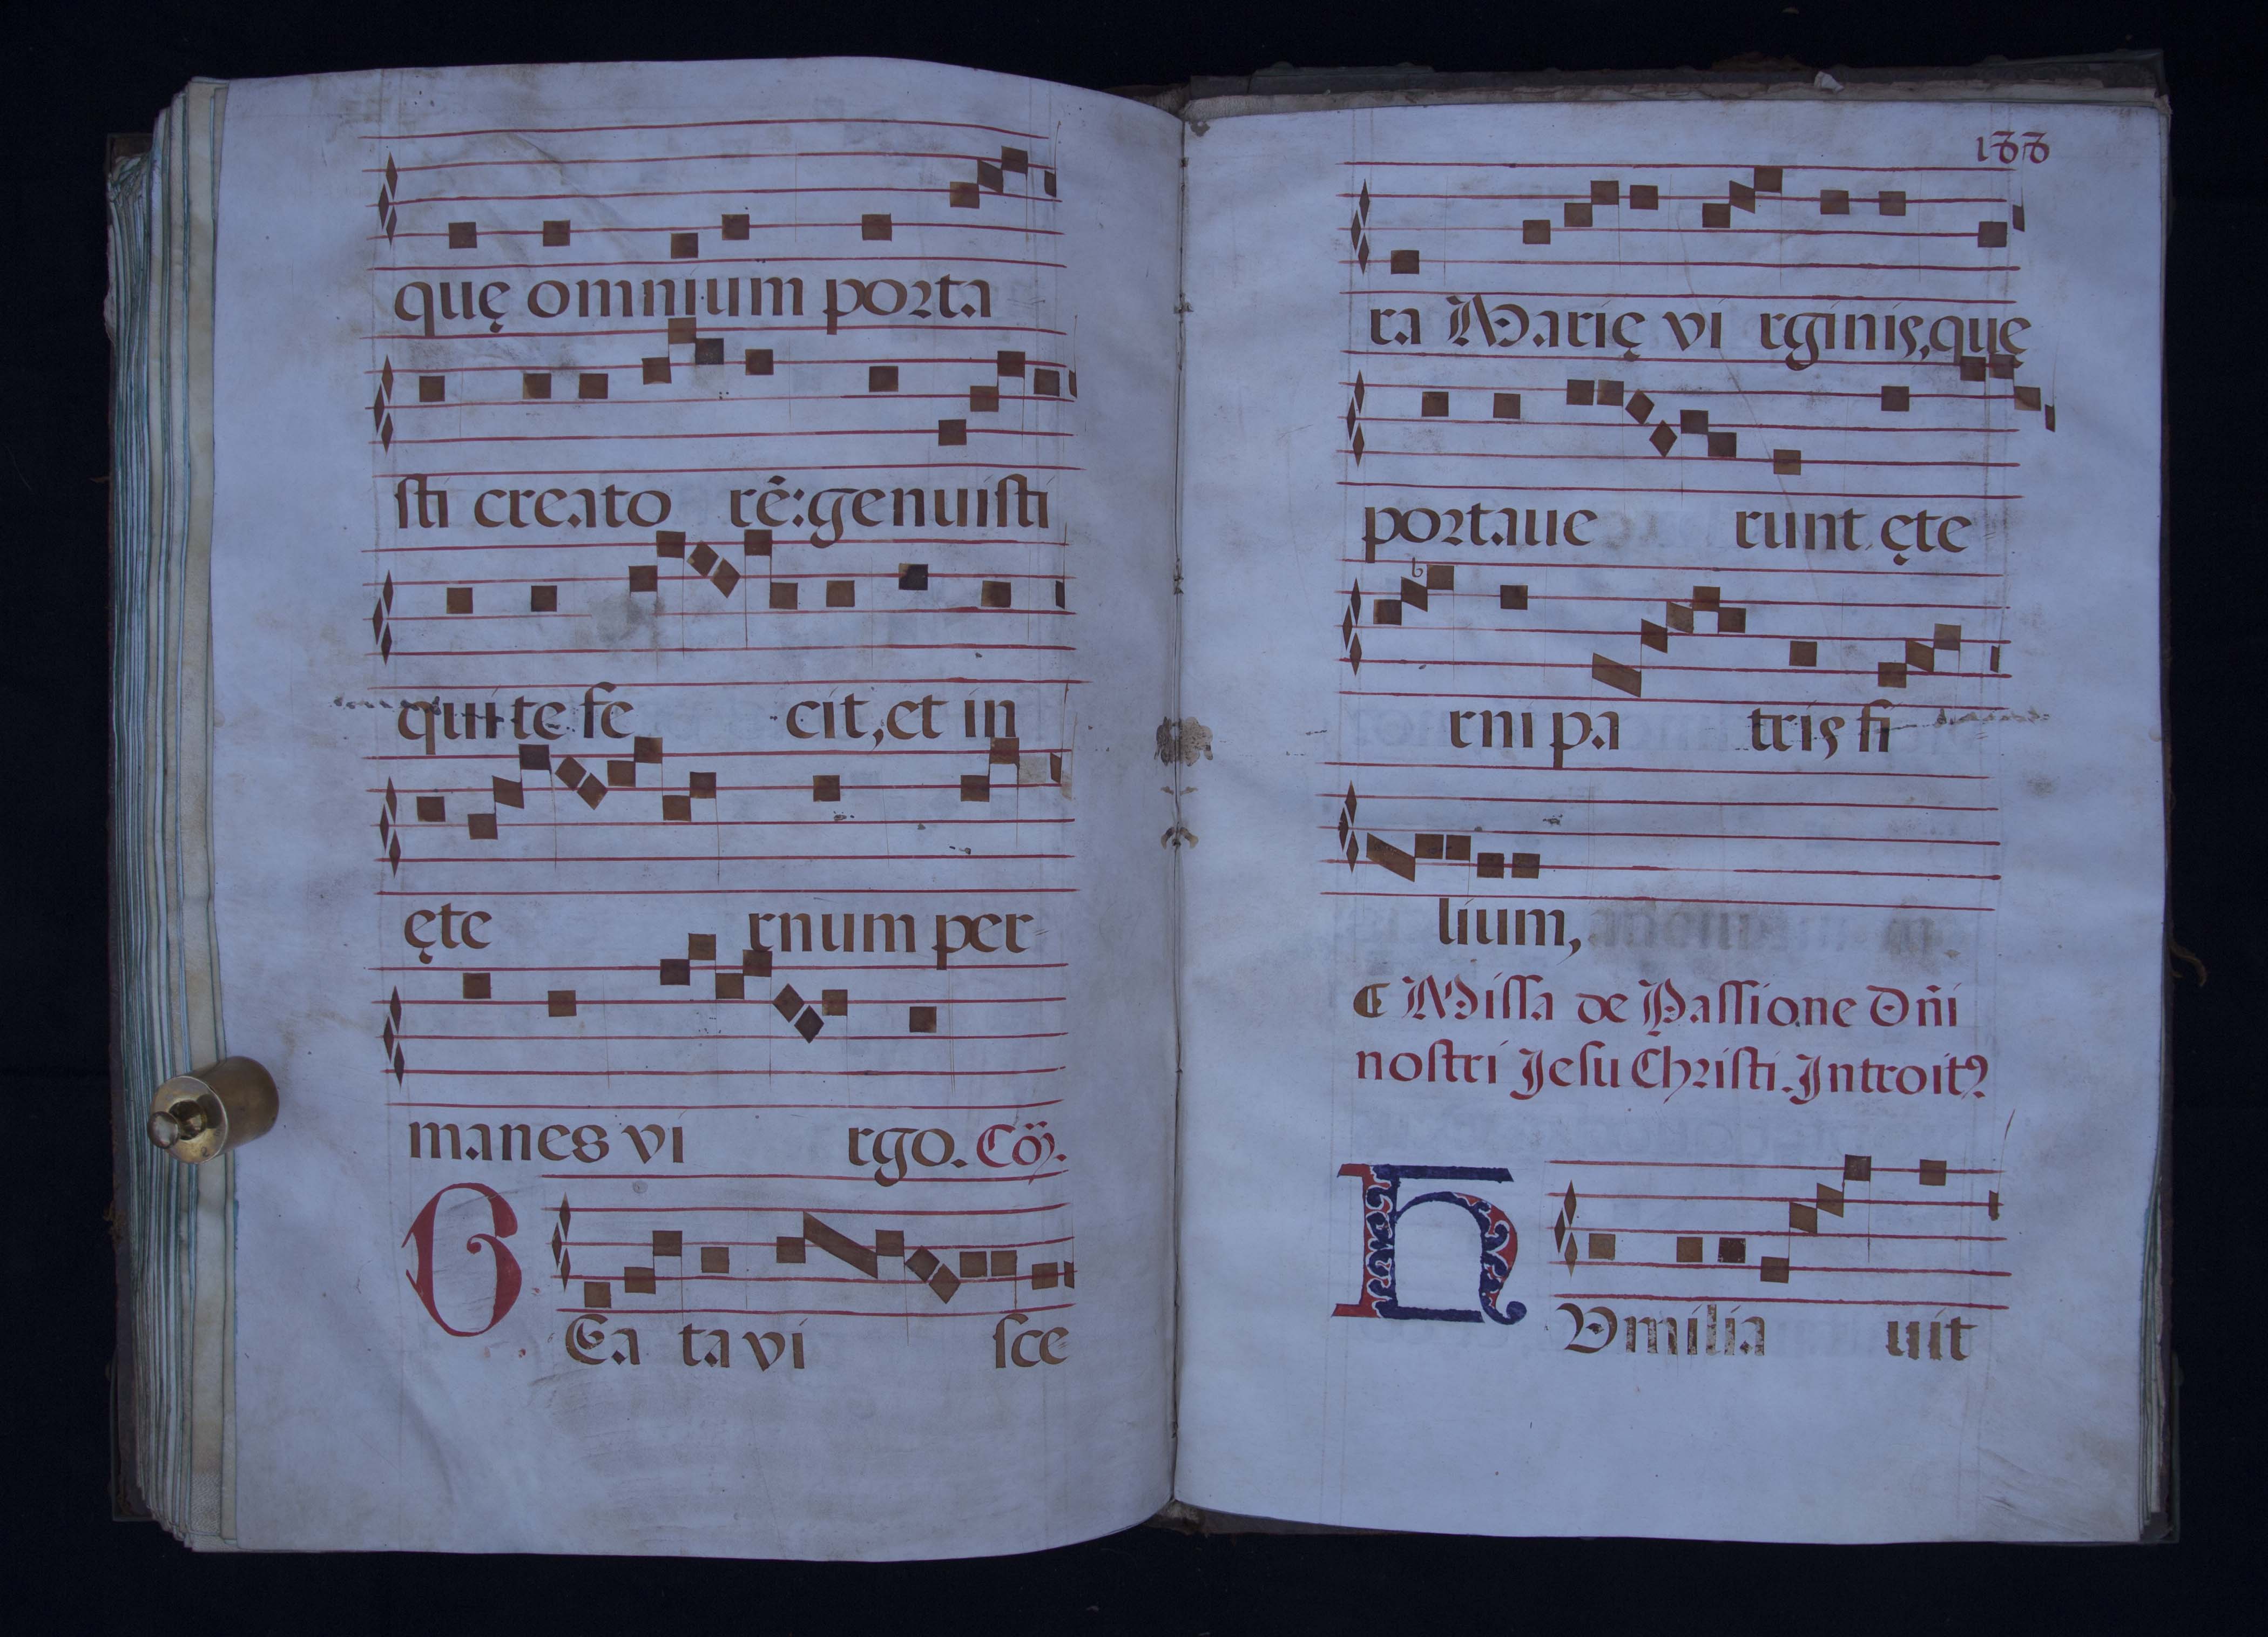 quę omnium porta
sti creato rē:genuisti
qui te fe cit, et in
ęte rnum per
manes vi rgo. Cō.
B Ea ta vi sce
177
ra Marię vi rginis, quę
portaue runt ęte
rni pa tris fi
lium,
¶ Missa de Passione Dñi
nostri Jesu Christi. Introitꝰ
H Vmilia uit